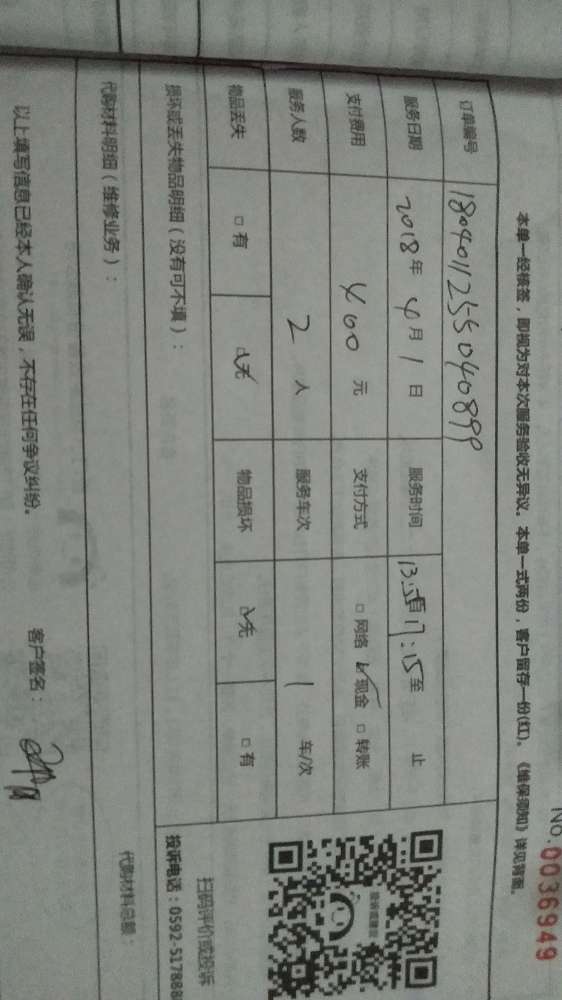 No.0036949
本单一经核签，即视为对本次服务验收无异议。本单一式两份，客户留存一份(红)。《维保须知》详见背面。
订单编号 1804011255040899
服务日期 2018年4月1日 服务时间 13:5自17:15至 止
支付费用 400元 支付方式 □网络 ☑现金 □转账
服务人数 2人 服务车次 1车/次
物品丢失 □有 ☑无 物品损坏 ☑无 □有
损坏或丢失物品明细（没有可不填）：
扫码评价或投诉
投诉电话：0592-5178888
代购材料明细（维修业务）：
代购材料总额：
以上填写信息已经本人确认无误，不存在任何争议纠纷。
客户签名：